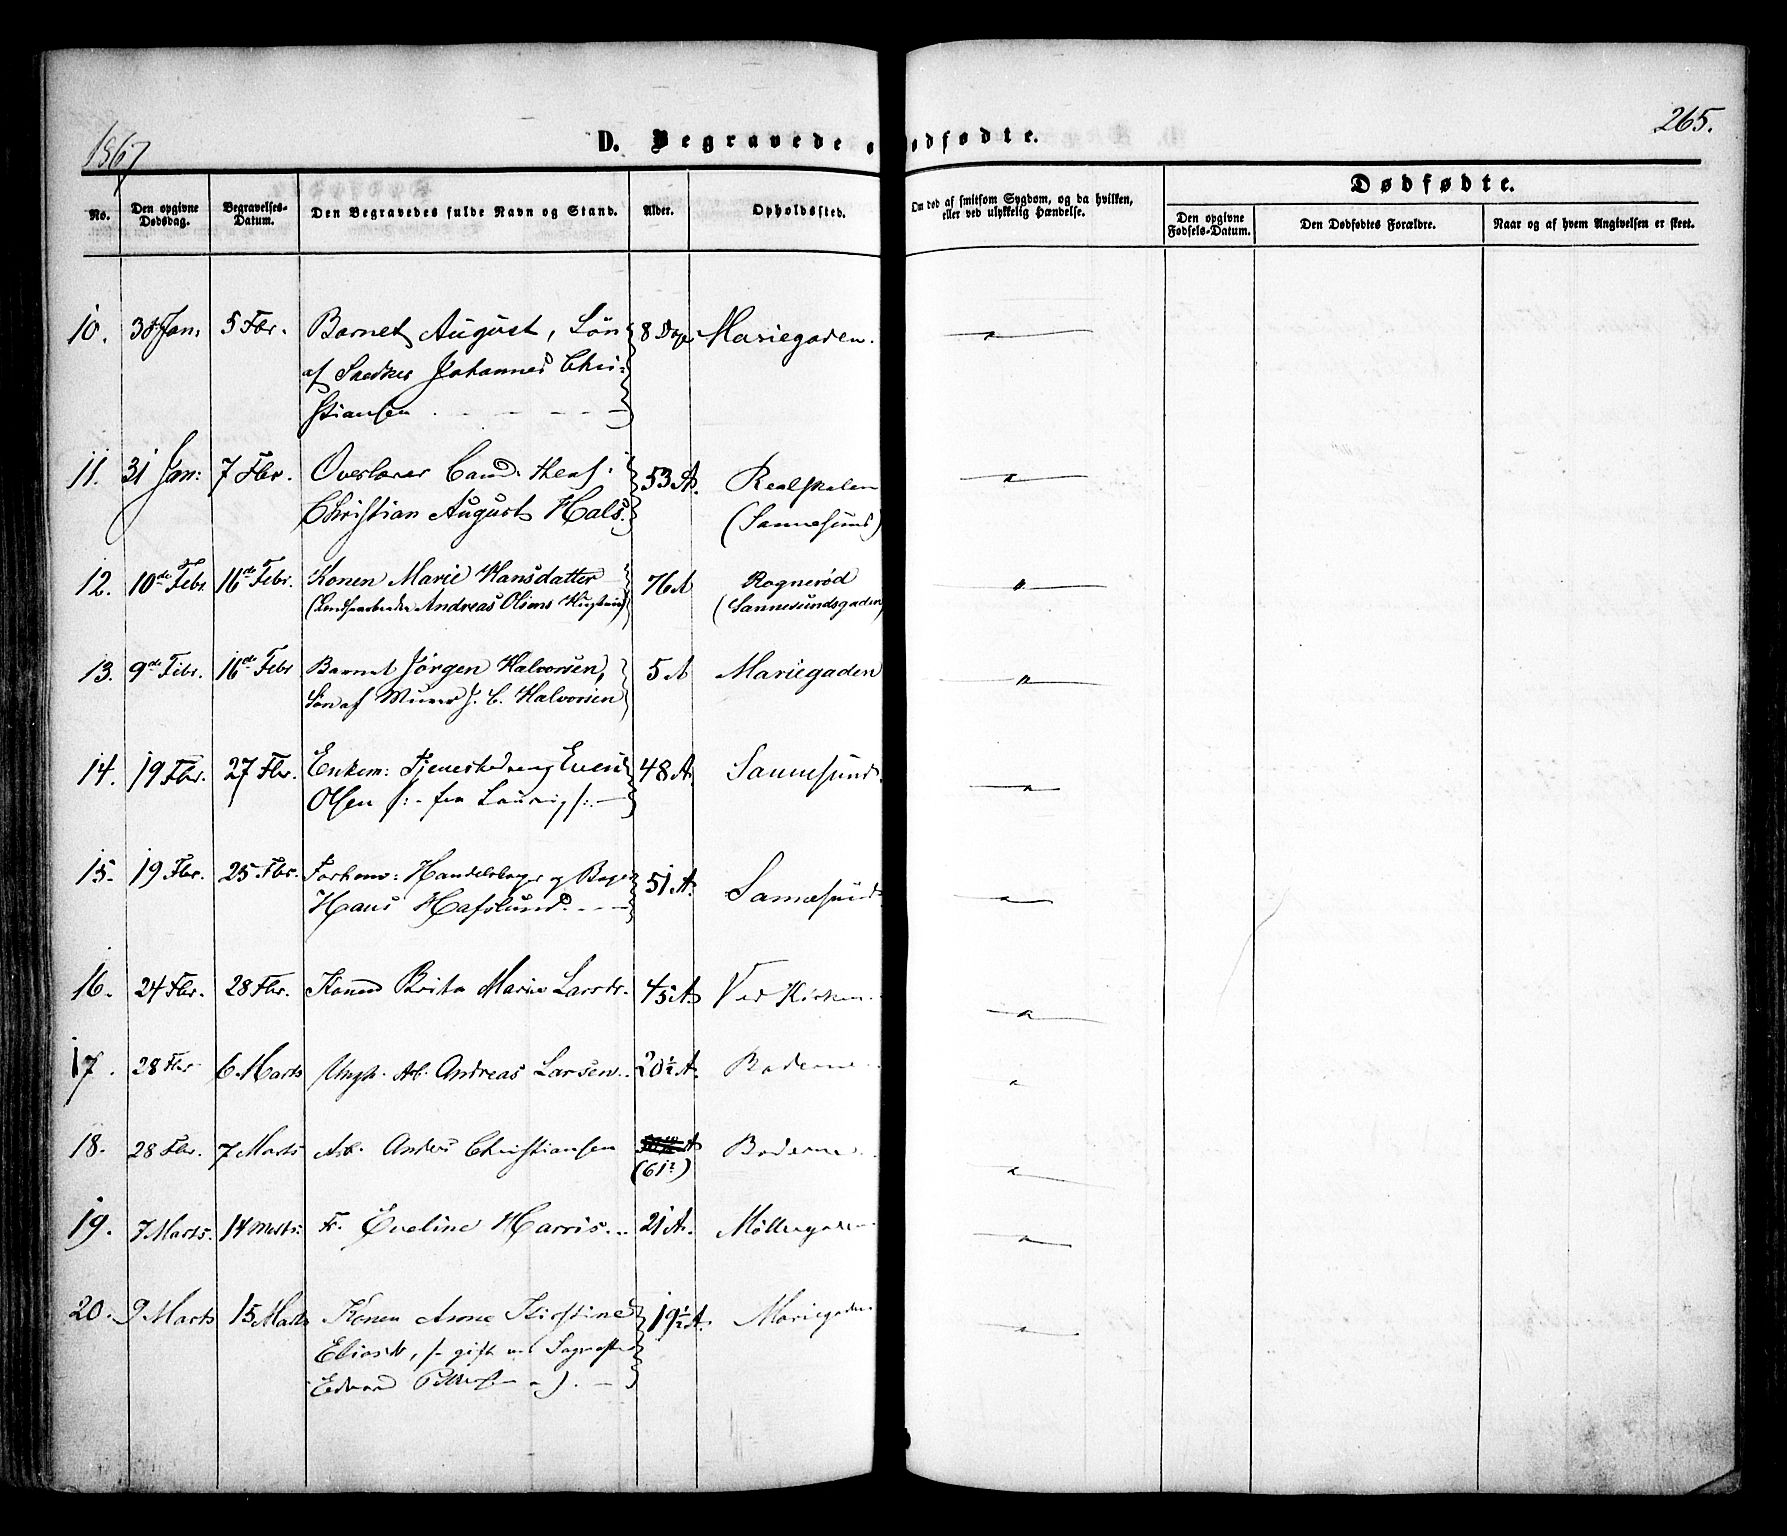 1867
265.
D. Begravede o
odfødte.
Dødfødte.
No.
Den opgivne Dødsdag.
Begravelses-Datum.
Den Begravedes fulde Navn og Stand.
Alder.
Opholdssted.
Om død af smitsom Sygdom, og da hvilken, eller ved ulykkelig Hændelse.
Den opgivne Fødsels-Datum.
Den Dødfødtes Forældre.
Naar og af hvem Angivelsen er skeet.
10. 30 Jan: 5 Fbr. Barnet August, Søn 8 Dage Mariegaden. "
af Snedker Johannes Chri-
stiansen
11. 31 Jan: 7 Fbr. Overlærer Cand: theol: 53 A. Realskolen "
Christian August Hals. (Sannesund)
12. 10de Febr. 16de Febr. Konen Marie Hansdatter 76 A Rognerød "
Andreas Olsens (Sannesundsgaden)
13. 9de Febr. 16de Febr Barnet Jørgen Halvorsen, 5 A Mariegaden "
Søn af Murer J. C. Halvorsen
14. 19 Fbr. 27 Fbr. Enkem: Even 48 A. Sannesund. "
Olsen /:- fra Laurvig /:-
15. 19 Fbr. 25 Fbr. Forhenv: Handelsborger og Bager 51 A. Sannesund. "
Hans Hafslund.
16. 24 Fbr. 28 Fbr. Konen Brita Marie Larsdr. 45 A. Ved Kirken. "
17. 28 Fbr 6 Marts Ungk. Arb. Andreas Larsen. 20½ A. Boderne "
18. 28 Fbr. 7 Marts Arb. Anders Christiansen A Boderne. "
(61½)
19. 7 Marts. 14 Marts. Fr. Eveline Harris. 21 A. Møllergaden "
20. 9 Marts 15 Marts Konen Anne Kirstine 19½ A. Mariegaden "
Eliasdr, /- gift m
Edvard Pettersen